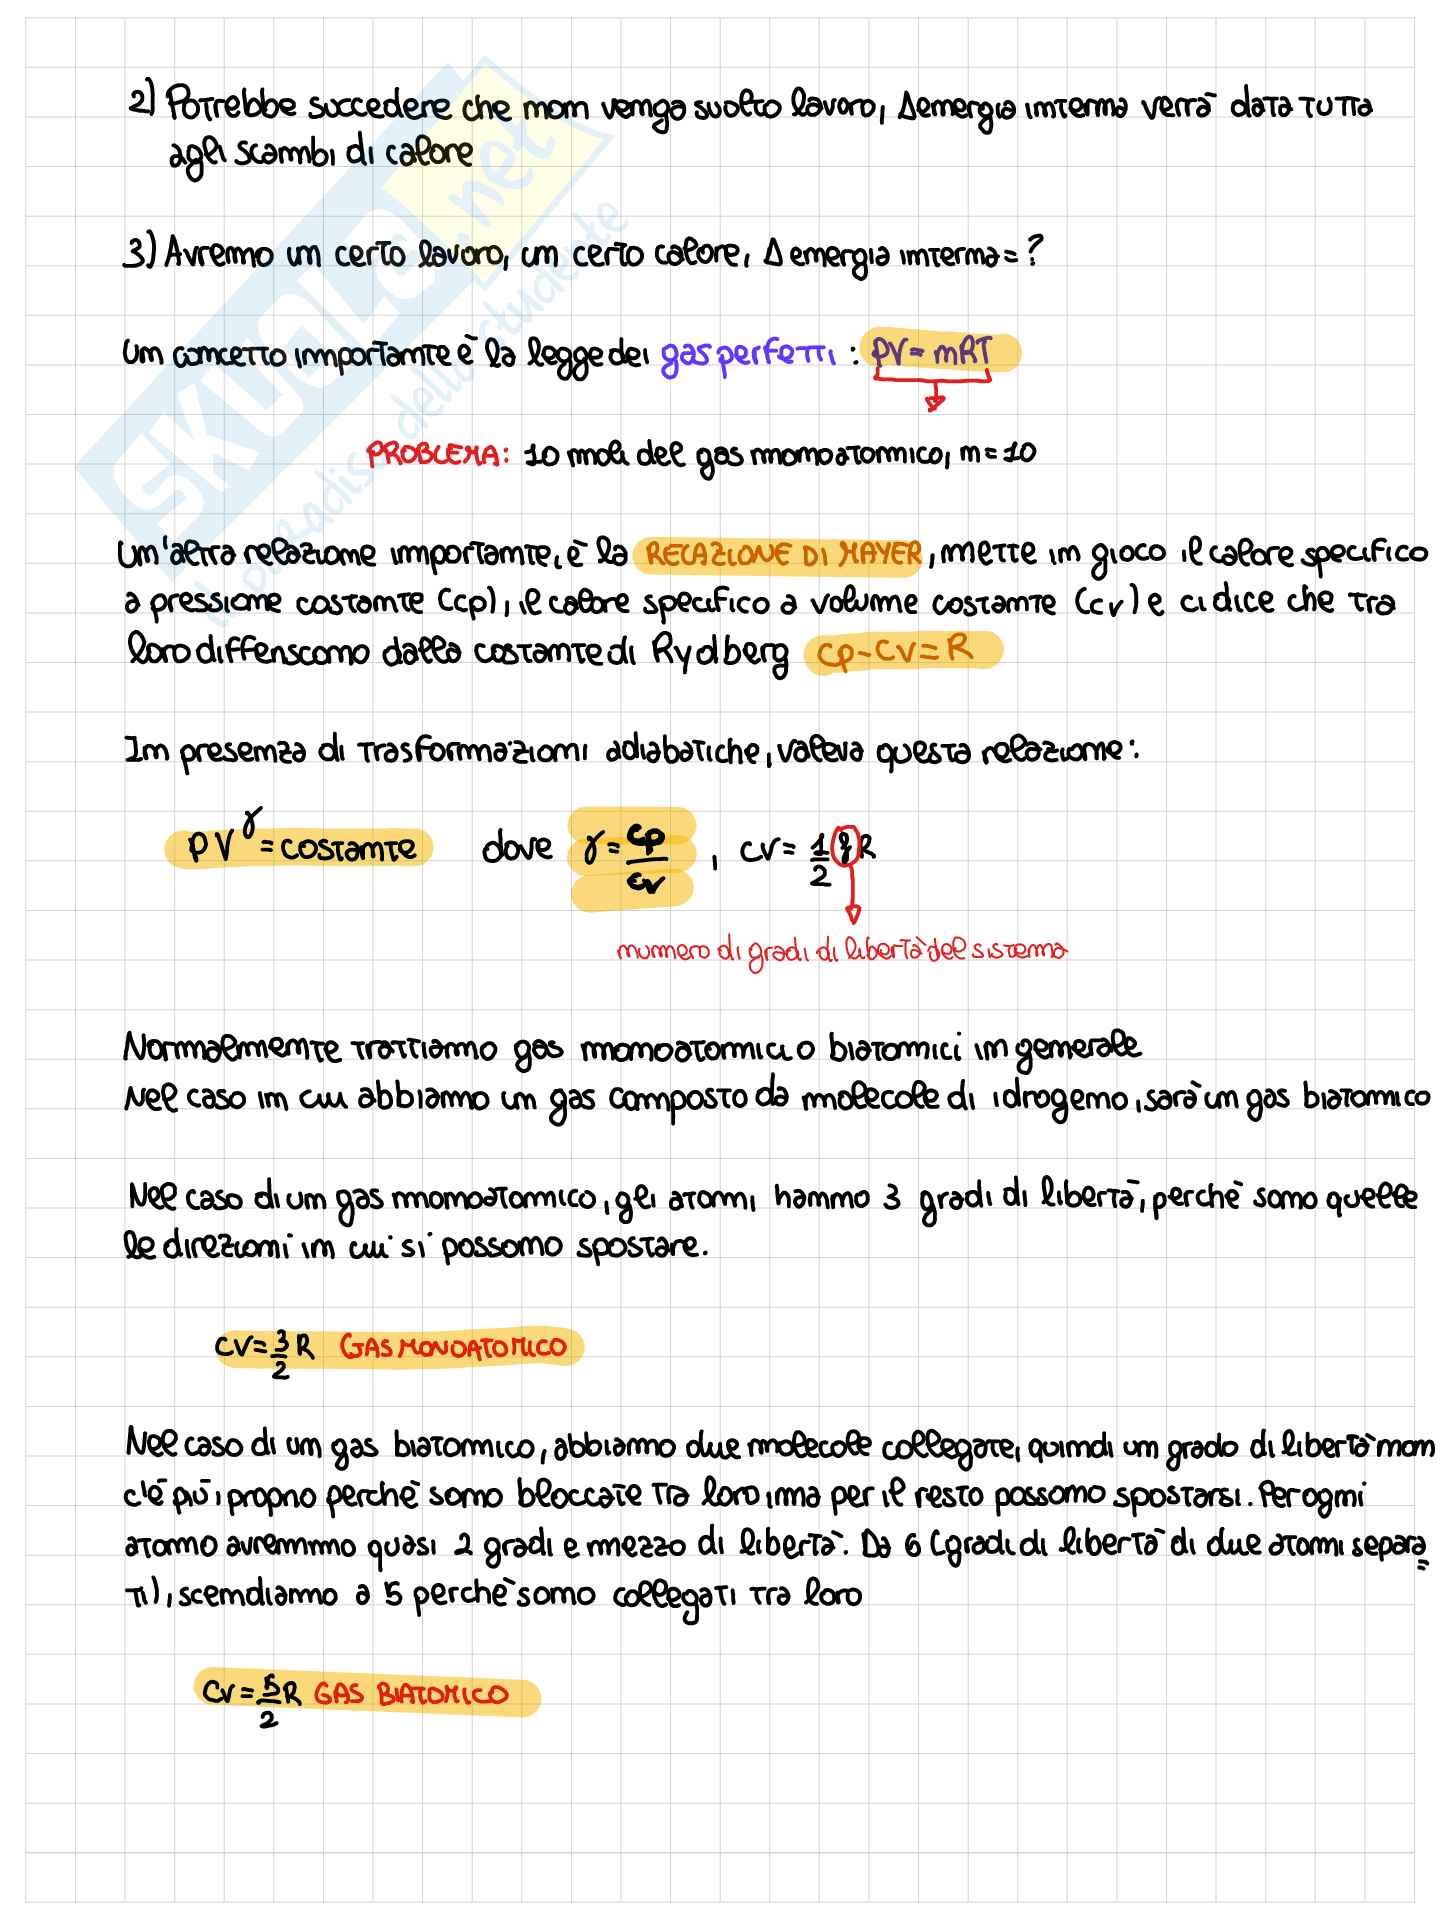 2) Potrebbe succedere che non venga svolto lavoro, Δenergia interna verrà data tutta
agli scambi di calore
3) Avremo un certo lavoro, un certo calore, Δ energia interna = ?
Un concetto importante è la legge dei gas perfetti : PV = nRT
PROBLEMA: 10 moli del gas monoatomico, n = 10
Un'altra relazione importante, è la RELAZIONE DI MAYER, mette in gioco il calore specifico
a pressione costante (cp), il calore specifico a volume costante (cv) e ci dice che tra
loro differiscono dalla costante di Rydberg cp - cv = R
In presenza di trasformazioni adiabatiche, valeva questa relazione:
PV^γ = costante dove γ = cp/cv , cv = 1/2 f R
numero di gradi di libertà del sistema
Normalmente trattiamo gas monoatomici o biatomici in generale
Nel caso in cui abbiamo un gas composto da molecole di idrogeno, sarà un gas biatomico
Nel caso di un gas monoatomico, gli atomi hanno 3 gradi di libertà, perchè sono quelle
le direzioni in cui si possono spostare.
cv = 3/2 R GAS MONOATOMICO
Nel caso di un gas biatomico, abbiamo due molecole collegate, quindi un grado di libertà non
c'è più, proprio perchè sono bloccate tra loro, ma per il resto possono spostarsi. Per ogni
atomo avremmo quasi 2 gradi e mezzo di libertà. Da 6 (gradi di libertà di due atomi separa
ti), scendiamo a 5 perchè sono collegati tra loro
Cv = 5/2 R GAS BIATOMICO
SKUOLA.net
il paradiso dello studente